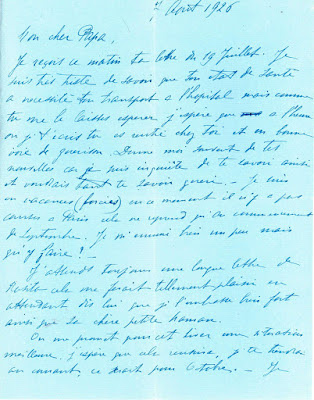 Août 1926
Mon cher Papa,
Je reçois ce matin ta lettre du 19 Juillet. Je
suis très triste de savoir que ton état de santé
a nécessité ton transport a l'hopital mais comme
tu me le laisses esperer j'espère que a l'heure
où je t'écris tu es rentré chez toi et en bonne
voie de guerison. Donne moi souvent de tes
nouvelles car je suis inquiète de te savoir ainsi
et voudrais tant te savoir gueri. - Je suis
en vacances (forcées) en ce moment il n'y a pas
a Paris cela ne reprend qu'au commencement
de Septembre. Je m'ennuie bien un peu mais
qu'y faire! -
J'attends toujours une longue lettre de
cela me ferait tellement plaisir en
attendant dis lui que je l'embrasse bien fort
ainsi que sa chère petite maman.
On me promet pour cet hiver une situation
meilleure, j'espère que cela reussira, je te tiendrai
au courant, ce serait pour Octobre. - Je